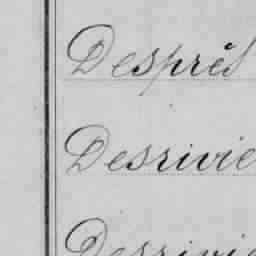 Després
Desrivie
Desrivie